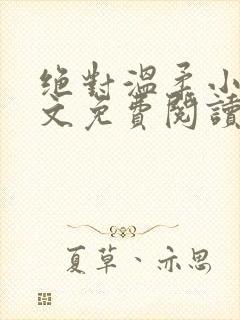 絕對溫柔小
文免費閱讀
夏草、亦思